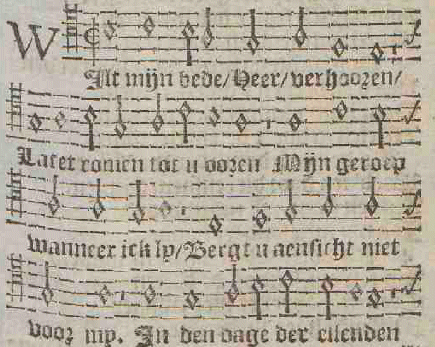 WIlt mijn bede/Heer/verhooren/
Latet komen tot u ooren Mijn geroep
wanneer ick ly/Bergt u aensicht niet
voor my. In den dage der ellenden